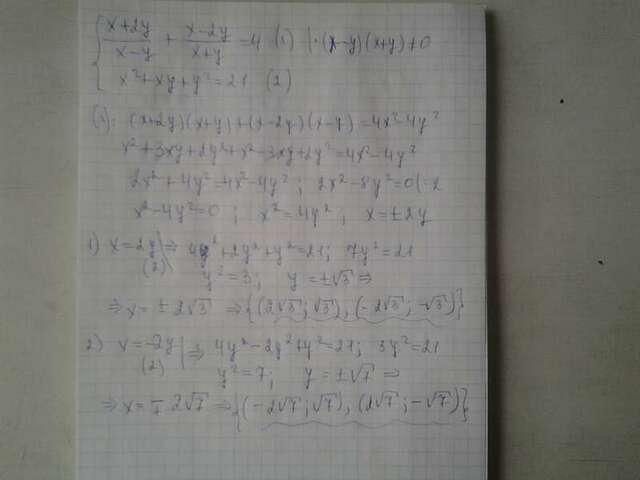 { (x+2y)/(x-y) + (x-2y)/(x+y) = 4 (1) | ·(x-y)(x+y) ≠ 0
x²+xy+y²=21 (2)
(1): (x+2y)(x+y)+(x-2y)(x-y)=4x²-4y²
x²+3xy+2y²+x²-3xy+2y²=4x²-4y²
2x²+4y²=4x²-4y² ; 2x²-8y²=0 |:2
x²-4y²=0 ; x²=4y² ; x=±2y
1) x=2y | ⇒ 4y²+2y²+y²=21; 7y²=21
(2) y²=3; y=±√3 ⇒
⇒ x=±2√3 ⇒ {(2√3;√3), (-2√3;-√3)}
2) x=-2y | ⇒ 4y²-2y²+y²=21; 3y²=21
(2) y²=7; y=±√7 ⇒
⇒ x=∓2√7 ⇒ {(-2√7;√7), (2√7;-√7)}